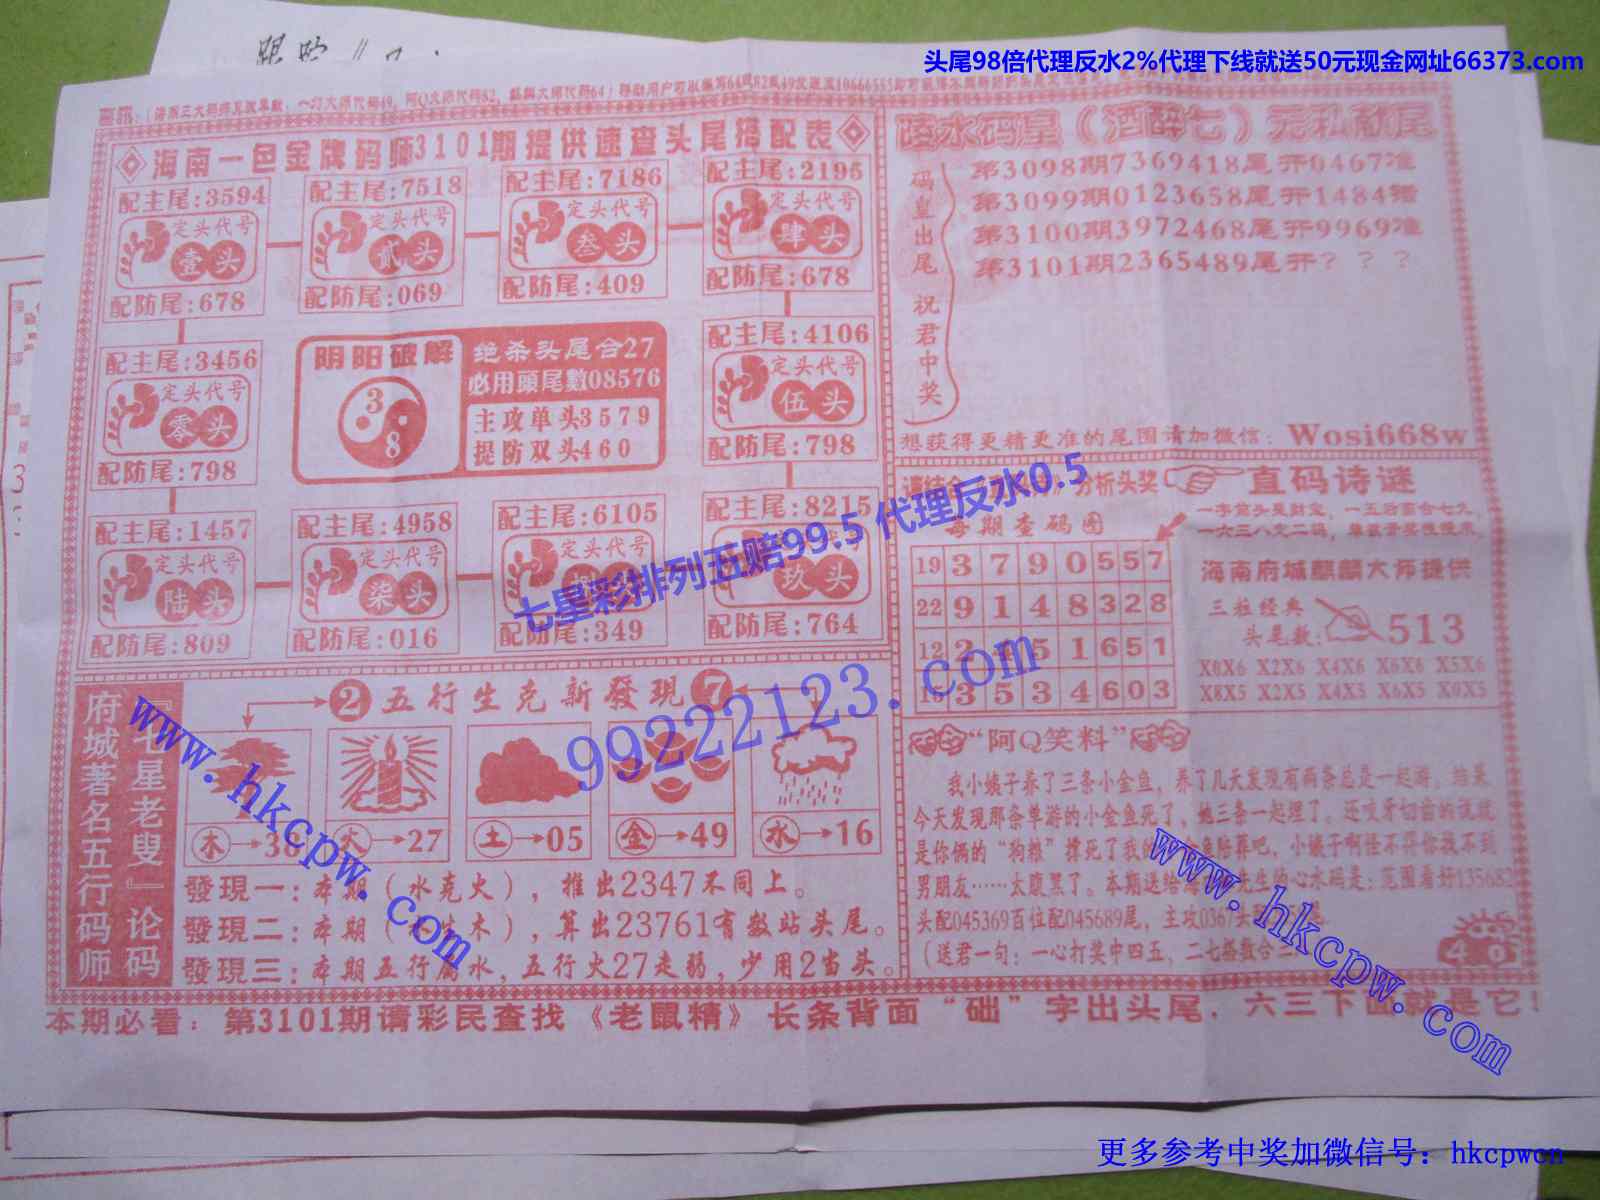 头尾98倍代理反水2%代理下线就送50元现金网址66373.com
海南一色金牌码师3101期提供速查头尾搭配表
配主尾:3594
定头代号
壹头
配防尾:678
配主尾:7518
定头代号
贰头
配防尾:069
配主尾:7186
定头代号
叁头
配防尾:409
配主尾:2195
定头代号
肆头
配防尾:678
配主尾:3456
定头代号
零头
配防尾:798
阴阳破解
3
8
绝杀头尾合27
必用頭尾數08576
主攻单头3579
提防双头460
配主尾:4106
定头代号
伍头
配防尾:798
配主尾:1457
定头代号
陆头
配防尾:809
配主尾:4958
定头代号
柒头
配防尾:016
配主尾:6105
定头代号
配防尾:349
配主尾:8215
玖头
配防尾:764
七星彩排列五赔99.5 代理反水0.5
99222123.com
陵水码皇（酒醉七）无私献尾
码皇出尾 祝君中奖
第3098期7369418尾开0467准
第3099期0123658尾开1484错
第3100期3972468尾开9969准
第3101期2365489尾开???
想获得更精更准的尾围请加微信: Wosi668w
分析头奖
每期查码图
19 3 7 9 0 5 5 7
22 9 1 4 8 3 2 8
12 2 4 5 1 6 5 1
3 5 3 4 6 0 3
直码诗谜
海南府城麒麟大师提供
三粒经典
头尾数: 513
X0X6 X2X6 X4X6 X6X6 X5X6
X8X5 X2X5 X4X5 X6X5 X0X5
府城著名五行码师
『七星老叟』论码
2 五行生克新發現 7
木→36
火→27
土→05
金→49
水→16
發現一: 本期(水克火), 推出2347不同上。
發現二: 本期( 木), 算出23761有数站头尾。
發現三: 本期五行属水, 五行火27走弱, 少用2当头。
“阿Q笑料”
我小姨子养了三条小金鱼, 养了几天发现有两条总是一起游。结果
今天发现那条单游的小金鱼死了, 她三条一起埋了。还咬牙切齿的说就
是你俩的“狗粮”撑死了我的 鱼陪葬吧, 小姨子啊怪不得你找不到
男朋友……太腹黑了。本期送给 先生的心水码是: 范围看好135682
头配045369百位配045689尾, 主攻0367头
(送君一句: 一心打奖中四五, 二七搭数合二
403
www.hkcpw.com
www.hkcpw.com
本期必看: 第3101期请彩民查找《老鼠精》长条背面“础”字出头尾, 六三下 就是它!
更多参考中奖加微信号: hkcpwcn